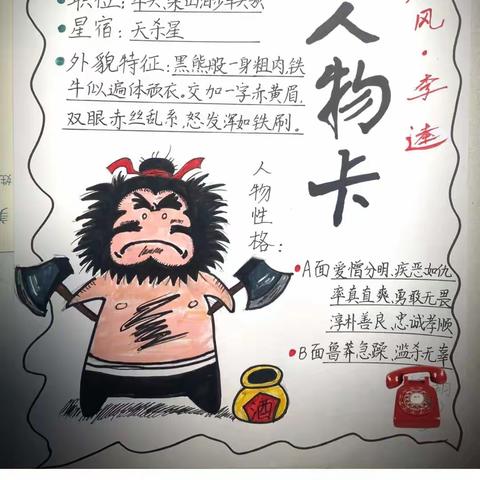 星宿：天杀星
外貌特征：黑熊般一身粗肉,铁
牛似遍体顽衣。交加一字赤黄眉,
双眼赤丝乱系,怒发浑如铁刷。
人物卡
风·李逵
人物性格：
A面爱憎分明、疾恶如仇
率真直爽、勇敢无畏
淳朴善良、忠诚孝顺
B面鲁莽急躁、滥杀无辜
酒